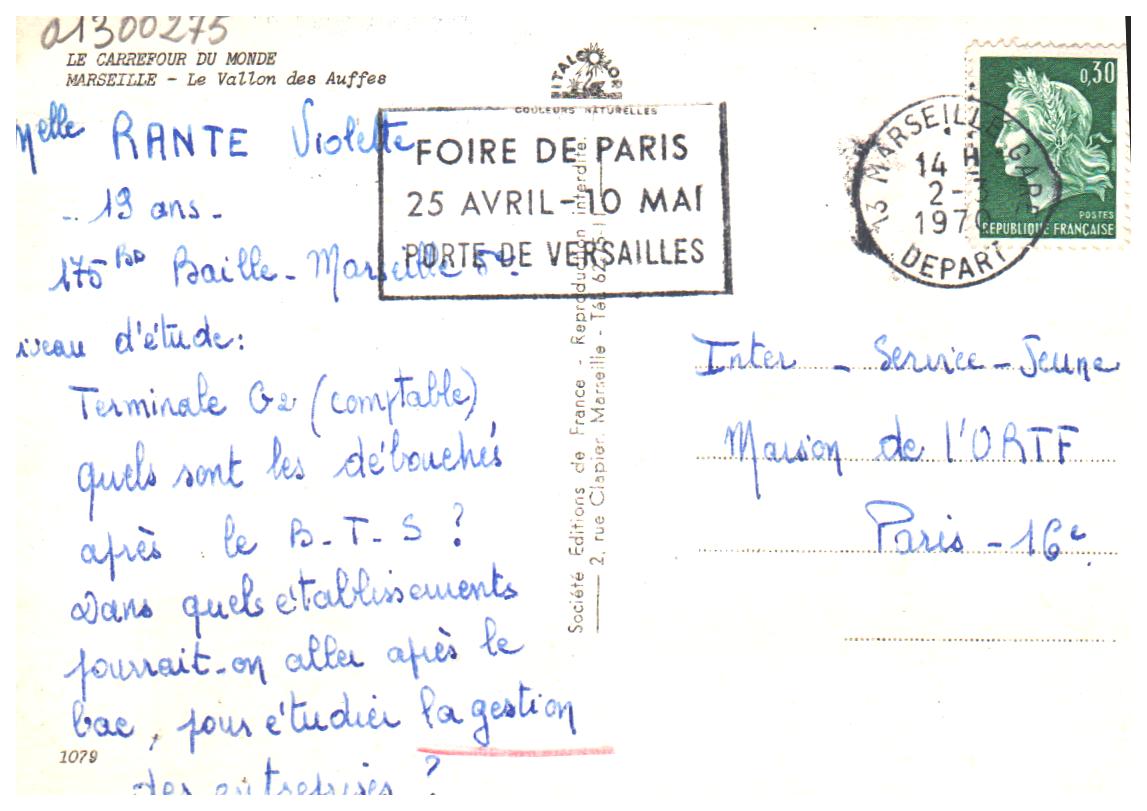 01300275
LE CARREFOUR DU MONDE
MARSEILLE - Le Vallon des Auffes
Melle RANTE Violette
- 19 ans -
175 BD Baille - Marseille 5e
niveau d'étude:
Terminale G2 (comptable)
quels sont les débouchés
après le B-T-S ?
Dans quels établissements
pourrait-on aller après le
bac, pour étudier la gestion
des entreprises ?
1079
ITALCOLOR
COULEURS NATURELLES
FOIRE DE PARIS
25 AVRIL-10 MAI
PORTE DE VERSAILLES
Société Editions de France - Reproduction interdite.
2, rue Clapier, Marseille - Tél. 62
13 MARSEILLE GARE
14 H
2-3
1970
DEPART
0,30
POSTES
REPUBLIQUE FRANÇAISE
Inter - Service - Jeune
Maison de l'ORTF
Paris - 16e